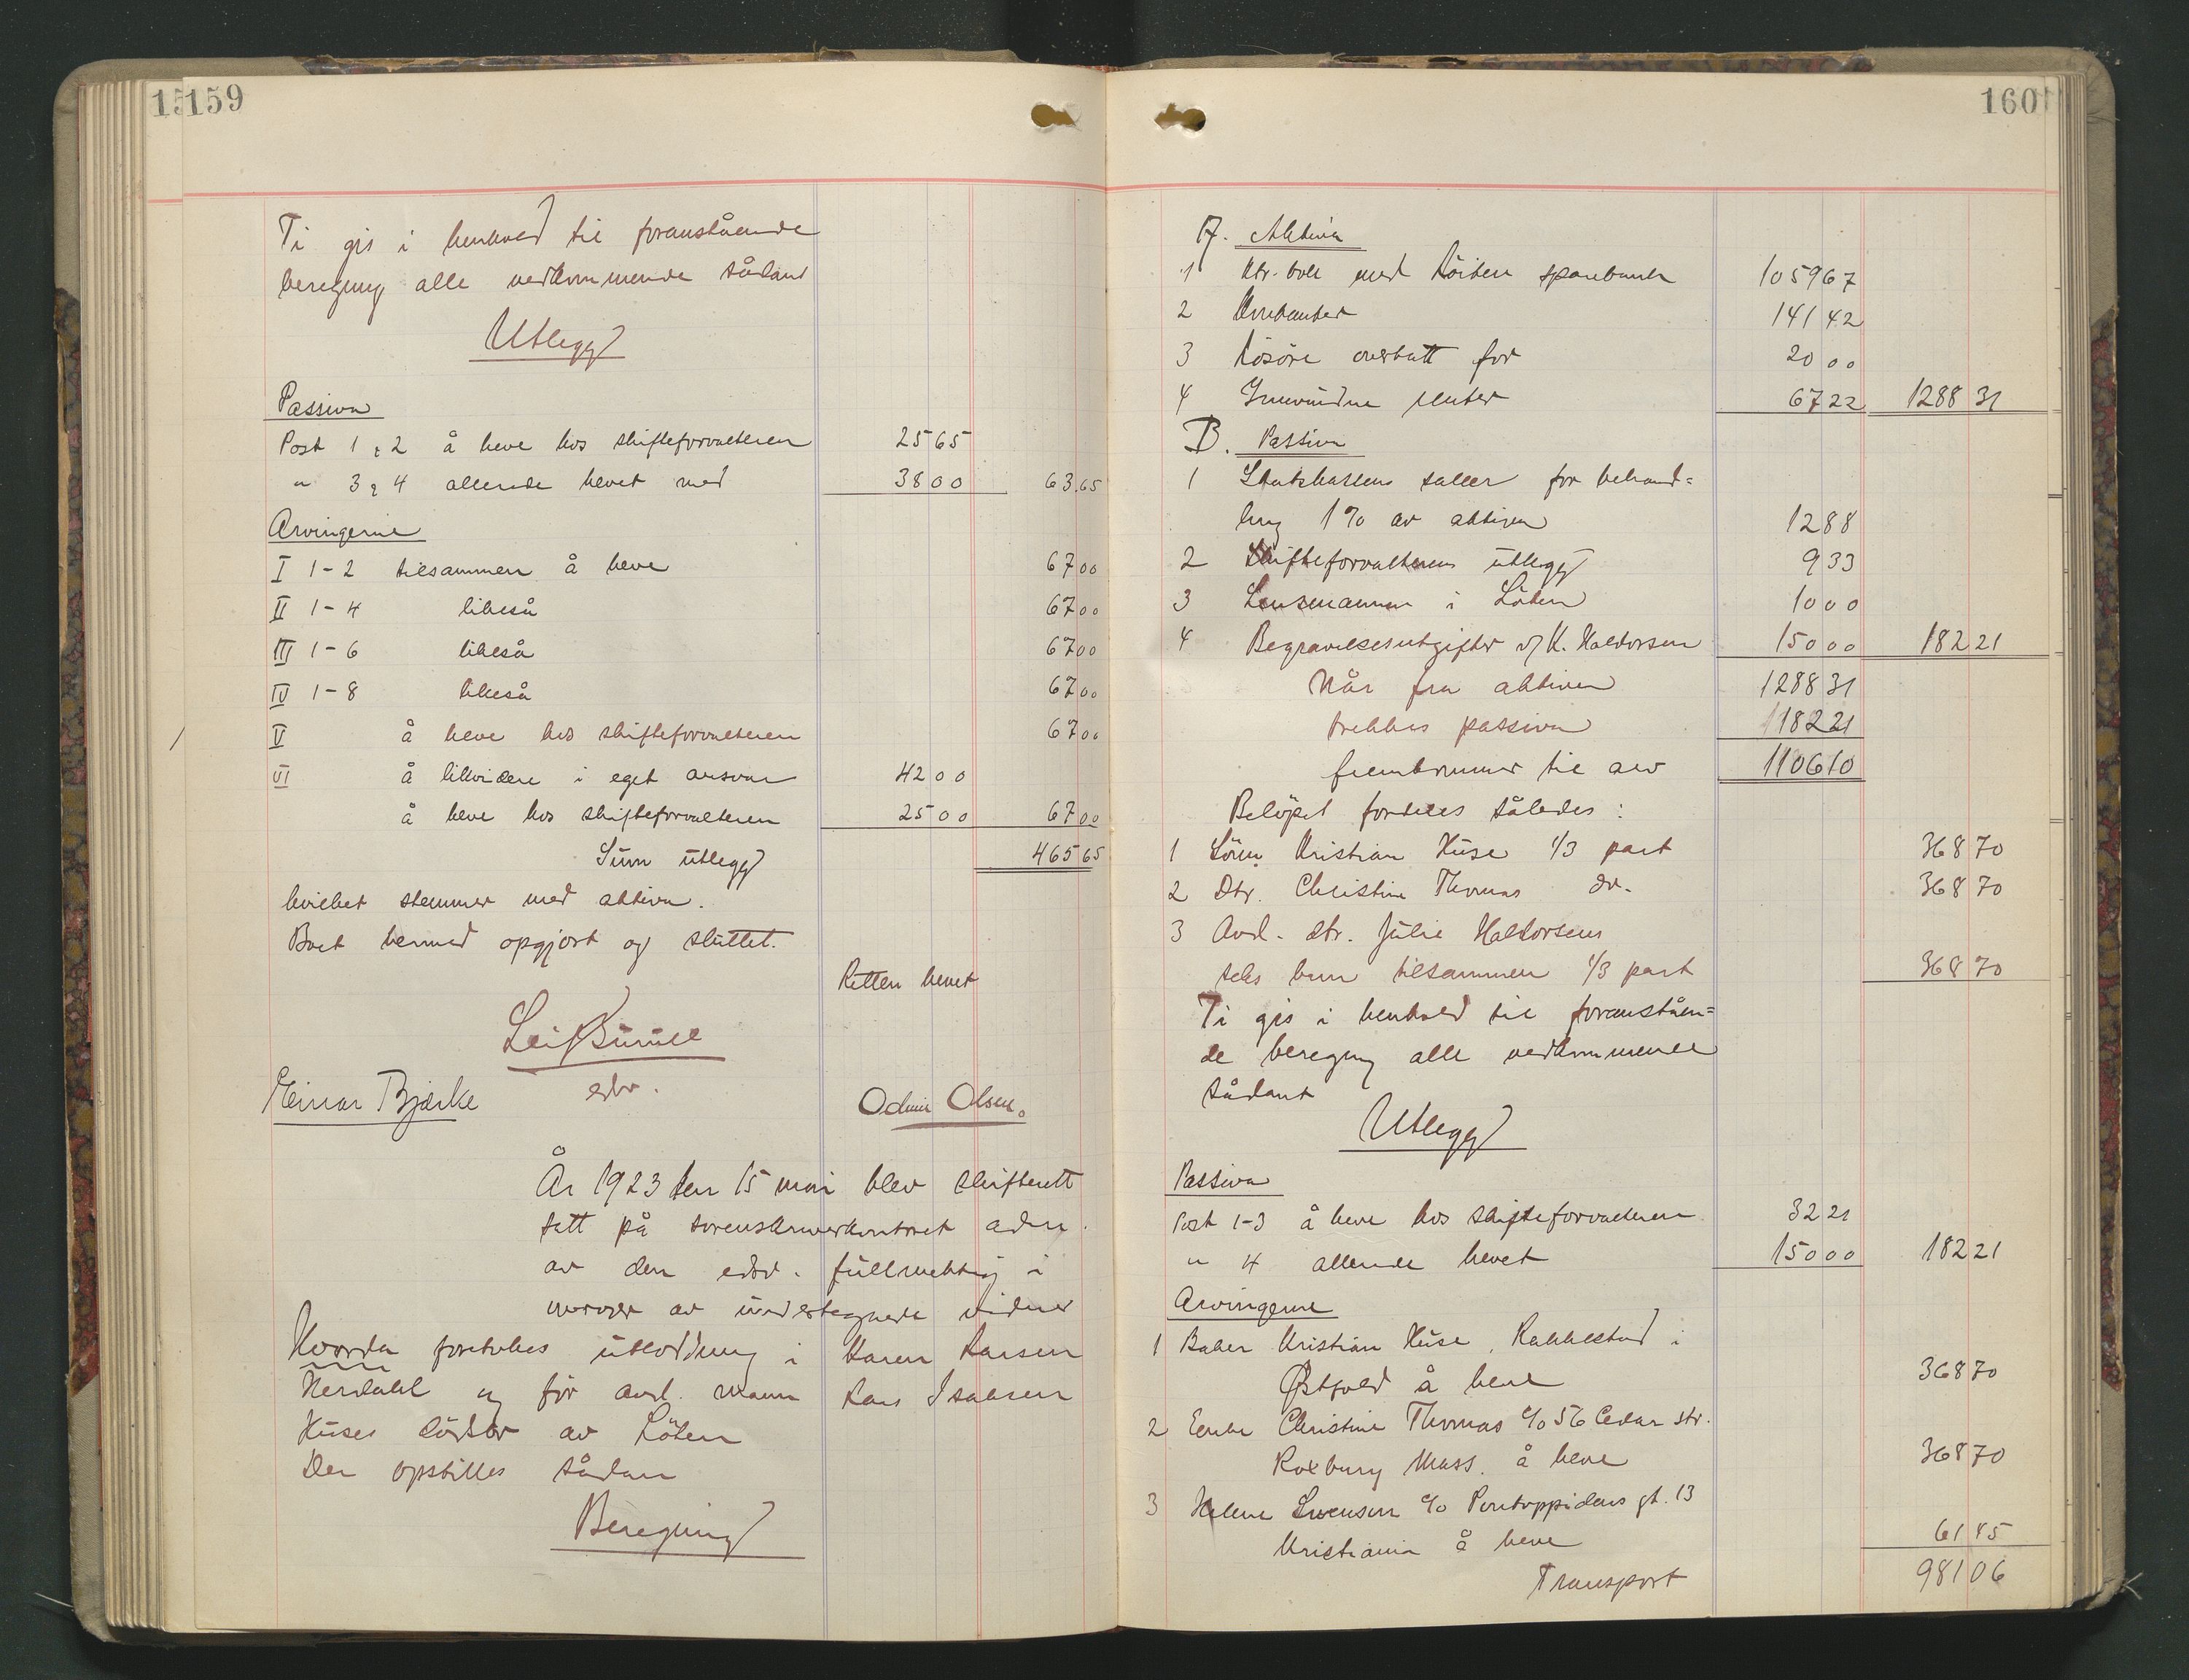 159
Ti gis i henhold til foranstående
beregning alle vedkommende sådant
Utlegg
Passiva
Post 1 & 2 å heve hos skifteforvalteren 25 65
" 3 & 4 allerede hevet med 38 00 63.65
Arvingerne
I 1-2 tilsammen å heve 67 00
II 1-4 likeså 67 00
III 1-6 likeså 67 00
IV 1-8 likeså 67 00
V å heve hos skifteforvalteren 67 00
VI å likvidere i eget ansvar 42 00
å heve hos skifteforvalteren 25 00 67 00
Sum utlegg 465 65
hvilket stemmer med aktiva.
Boet hermed opgjort og sluttet.
Retten hevet
edsv.
Einar Bjørke Odmir Olsen.
År 1923 den 15 mai blev skifterett
satt på sorenskriverkontoret adm.
av den edsv. fullmektig i
nærvær av undertegnede vidner
Hvorda foretokes utlodning i Karen Larsen
Herdahl og før avd. mann Lars Isaksen
Huses dødsbo av Löten
Der opstilles sådan
Beregning
160
A. Aktiva
1 Ktr. bok med Löiten sparebank 1059 67
2 Kontanter 141 42
3 Lösöre overtatt for 20 00
4 Innvundne renter 67 22 1288 31
B. Passiva
1 Statskassens saler for behand=
ling 1% av aktiva 12 88
2 Skifteforvalterens utlegg 9 33
3 Lensmannen i Löten 10 00
4 Begravelsesutgifter v/ K. Haldorsen 150 00 182 21
Når fra aktiva 1288 31
trekkes passiva 182 21
fremkommer til arv 1106 10
Beløpet fordeles således:
1 Sönn Kristian Huse 1/3 part 368 70
2 Dtr. Christine Thomas do. 368 70
3 Avd. dtr. Julie Haldorsens
seks barn tilsammen 1/3 part 368 70
Ti gis i henhold til foranståen=
de beregning alle vedkommende
sådant
Utlegg
Passiva
Post 1-3 å heve hos skifteforvalteren 32 21
" 4 allerede hevet 150 00 182 21
Arvingerne
1 Baker Kristian Huse, Rakkestad i
Østfold å heve 368 70
2 Enke Christine Thomas c/o 56 Cedar str.
Roxbury Mass. å heve 368 70
3 Helene Swensen c/o Pontoppidans gt. 13
Kristiania å heve 61 45
Transport 981 06